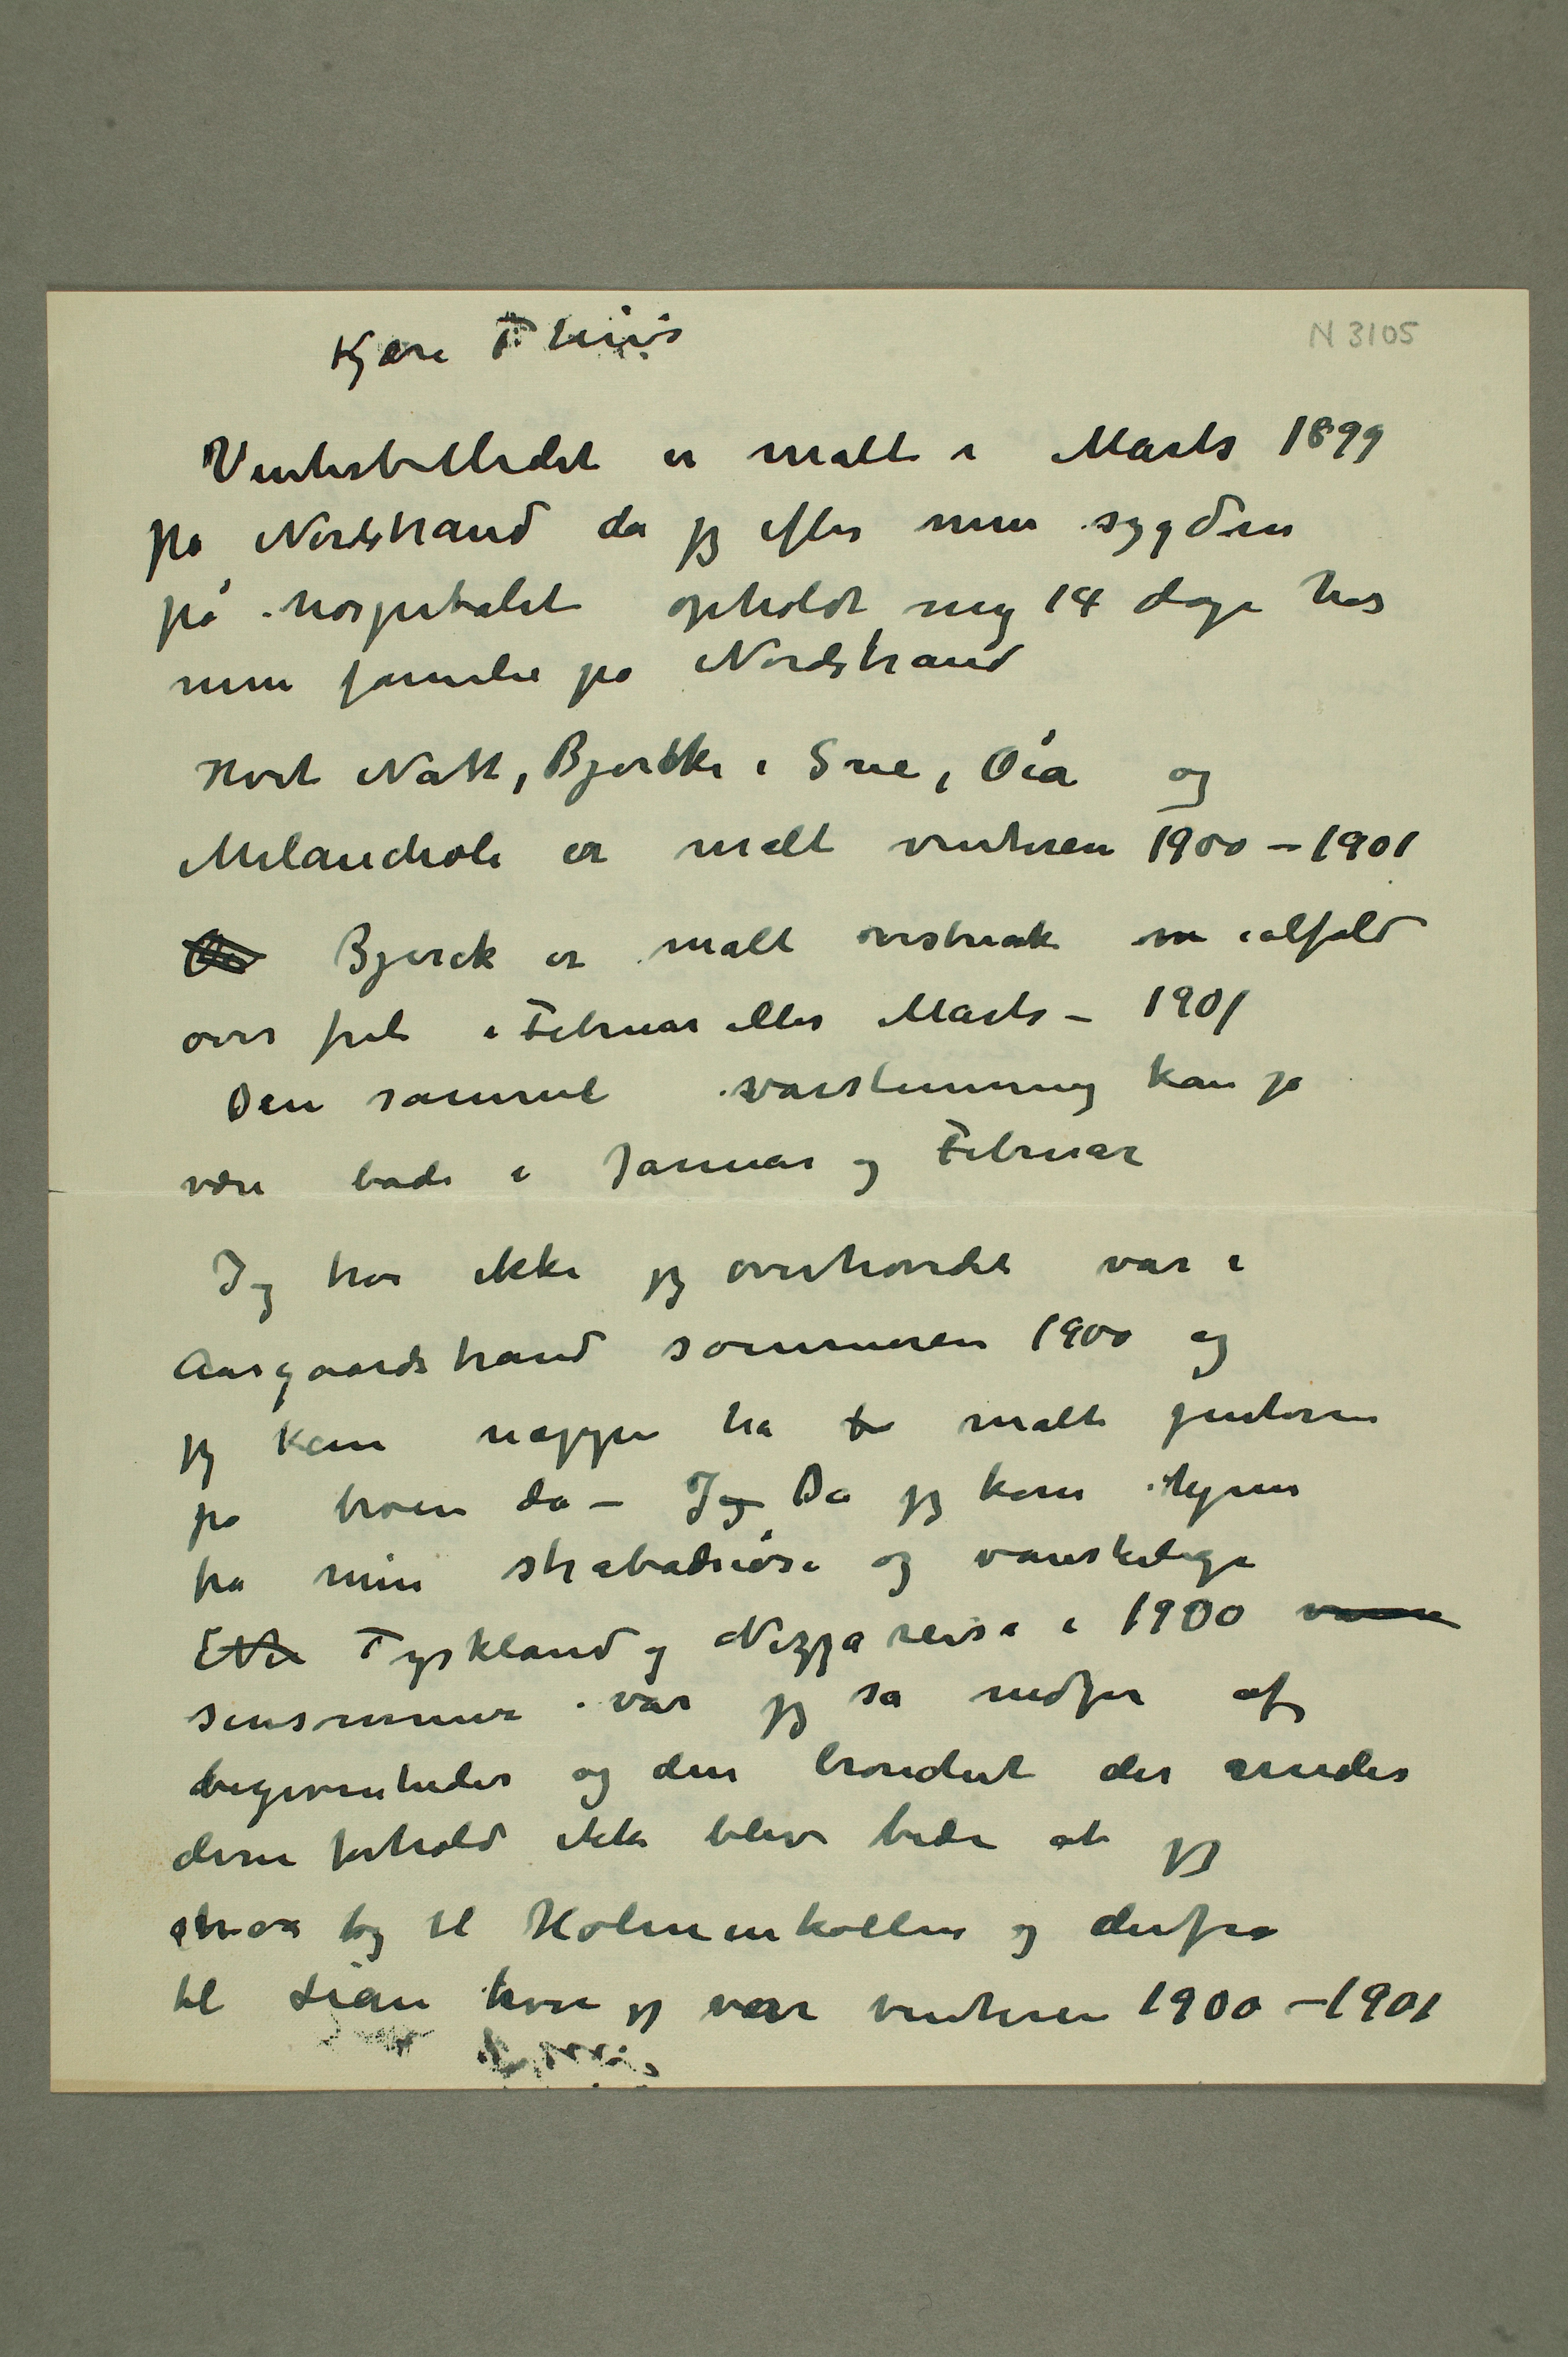 Kjære Thiis
N 3105
Vinterbilledet er malt i Marts 1899
på Nordstrand da jeg efter min sygdom
på hospitalet opholdt mig 14 dage hos
min familie på Nordstrand
Hvit Natt, Bjerke i Sne, Øia og
Melancholi er malt vinteren 1900–1901
Bjerck er malt overstrøk m ialfald
over frit i Februar eller Marts – 1901
Den samme varstemning kan jo
være både i Januar og Februar
Jeg tror ikke jeg overhovedet var i
Aasgaardstrand sommeren 1900 og
jeg kan neppe ha malt pikerne
på broen da – Jeg Da jeg kom hjem
fra min strabadsiøse og vanskelige
Tyskland og Nizzja reise i 1900
sensommer var jeg så nedfor af
begivenheder og den brondert der under
disse forhold ikke blev bedre at jeg
strax tog til Holmenkollen og derfra
til Lian hvor jeg var vinteren 1900–1901